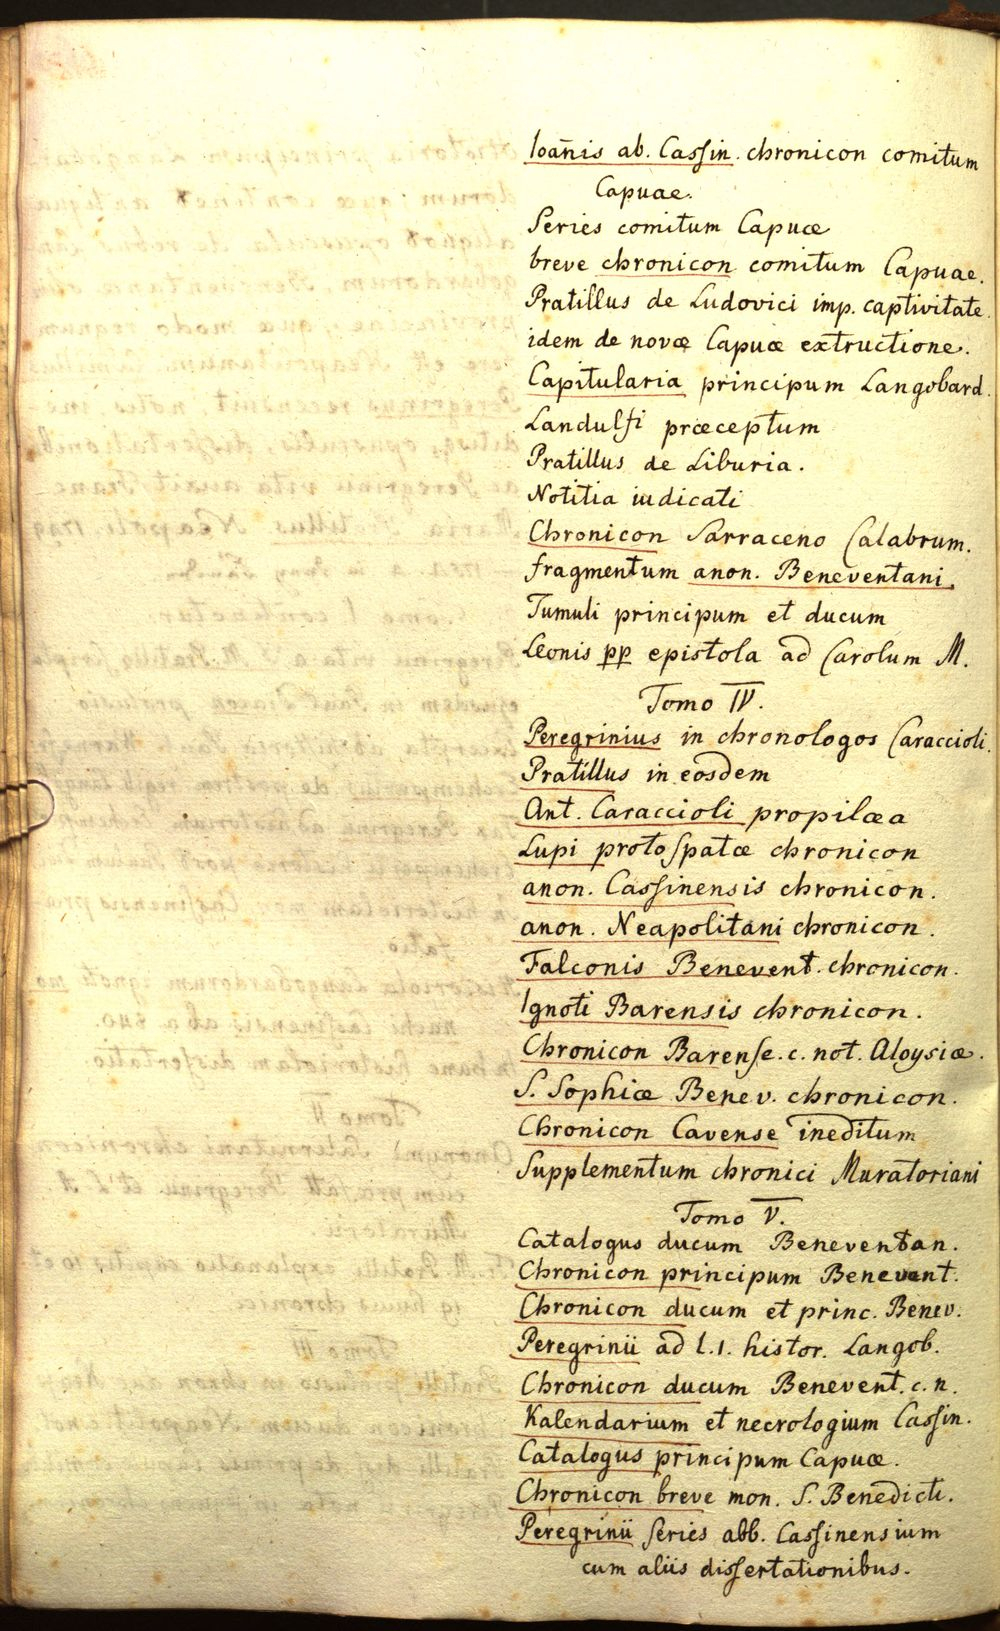 Ioan̄is ab. Cassin. chronicon comitum
Capuae.
Series comitum Capuæ
breve chronicon comitum Capuae.
Pratillus de Ludovici imp. captivitate.
idem de novæ Capuæ extructione.
Capitularia principum Langobard.
Landulfi præceptum
Pratillus de Liburia.
Notitia iudicati
Chronicon Sarraceno Calabrum.
fragmentum anon. Beneventani.
Tumuli principum et ducum
Leonis pp epistola ad Carolum M.
Tomo IV.
Peregrinius in chronologos Caraccioli.
Pratillus in eosdem
Ant. Caraccioli propilæa
Lupi protospatæ chronicon
anon. Cassinensis chronicon.
anon. Neapolitani chronicon.
Falconis Benevent. chronicon.
Ignoti Barensis chronicon.
Chronicon Barense. c. not. Aloysiæ.
S. Sophiæ Benev. chronicon.
Chronicon Cavense ineditum
Supplementum chronici Muratoriani
Tomo V.
Catalogus ducum Beneventan.
Chronicon principum Benevent.
Chronicon ducum et princ. Benev.
Peregrinii ad l.1. histor. Langob.
Chronicon ducum Benevent. c. n.
Kalendarium et necrologium Cassin.
Catalogus principum Capuæ.
Chronicon breve mon. S. Benedicti.
Peregrinii series abb. Cassinensium
cum aliis dissertationibus.